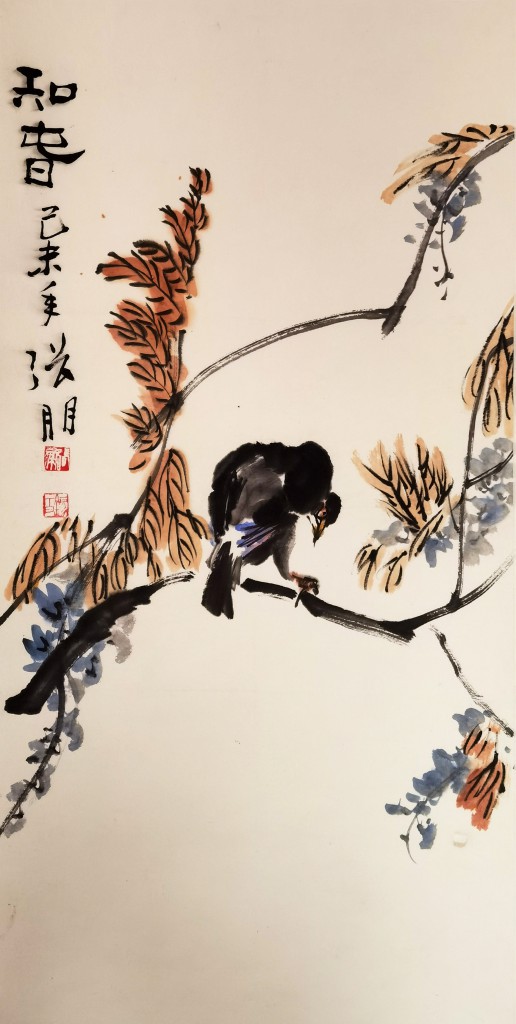 知春 己未年 张朋